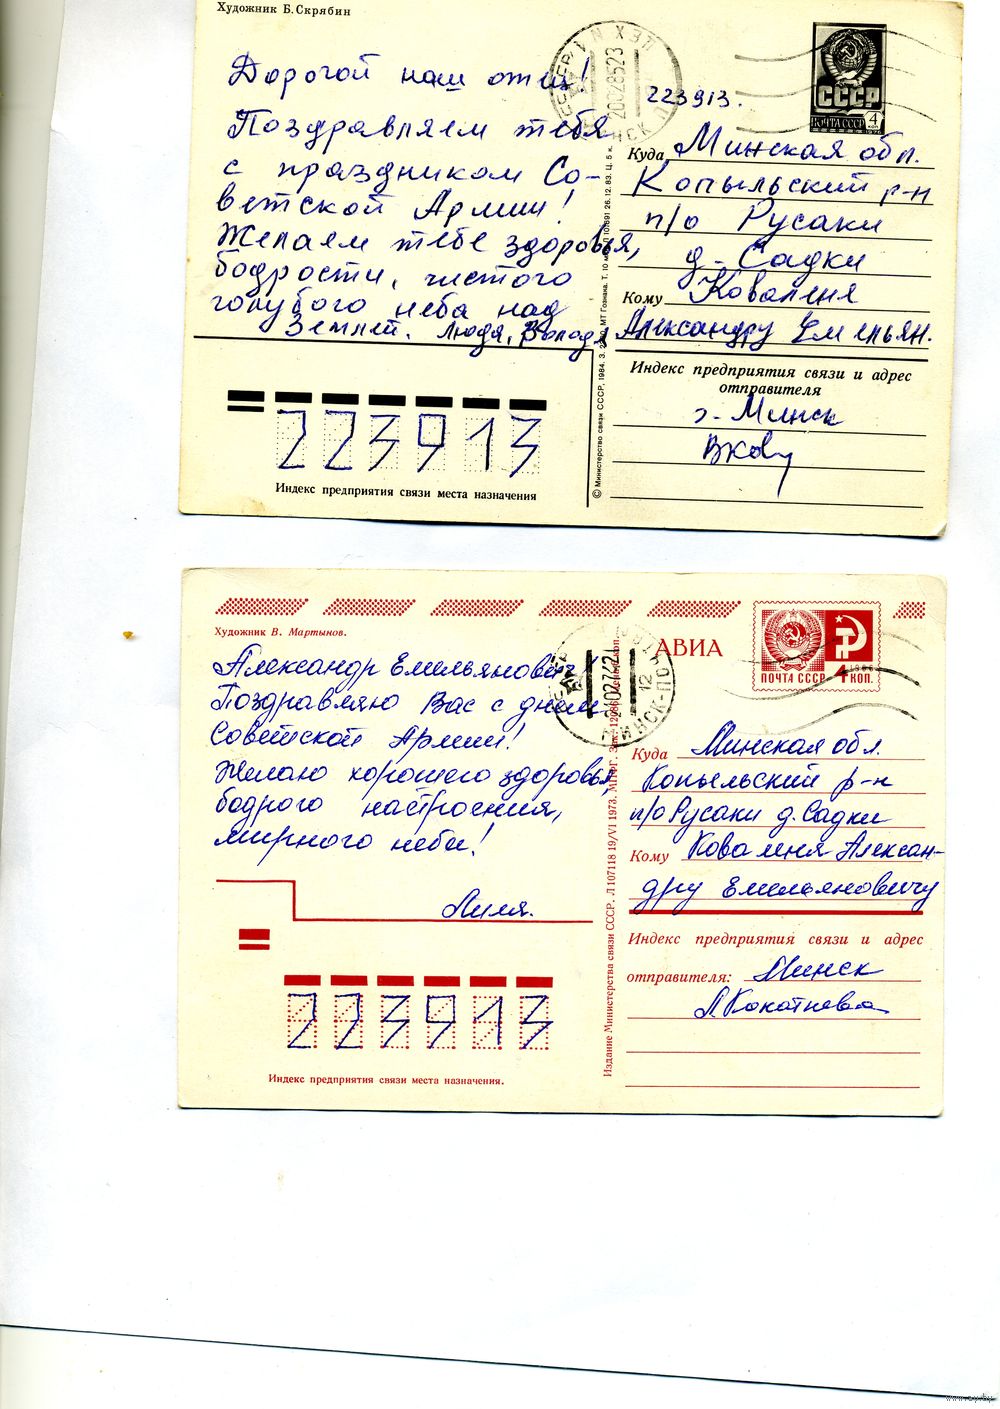 Художник Б. Скрябин
Дорогой наш отец!
Поздравляем тебя
с праздником Со-
ветской Армии!
Желаем тебе здоровья,
бодрости, чистого
голубого неба над
Землей. Люда, Волод
СССР
ПОЧТА СССР 4 коп
223913.
Куда Минская обл.
Копыльский р-н
п/о Русаки
д. Садки
Кому Коваленя
Александру Емельян.
Индекс предприятия связи и адрес
отправителя
г. Минск
223913
Индекс предприятия связи места назначения
© Министерство связи СССР, 1984. З.
Художник В. Мартынов.
АВИА
ПОЧТА СССР 4 КОП.
1966
Александр Емельянович!
Поздравляю Вас с днем
Советской Армии!
Желаю хорошего здоровья,
бодрого настроения,
мирного неба!
Лиля.
Куда Минская обл.
Копыльский р-н
п/о Русаки д. Садки
Кому Коваленя Алексан-
дру Емельяновичу
Индекс предприятия связи и адрес
отправителя: Минск
223913
Индекс предприятия связи места назначения.
Издание Министерства связи СССР. Л 107118 19/VI 1973.
www.ay.by